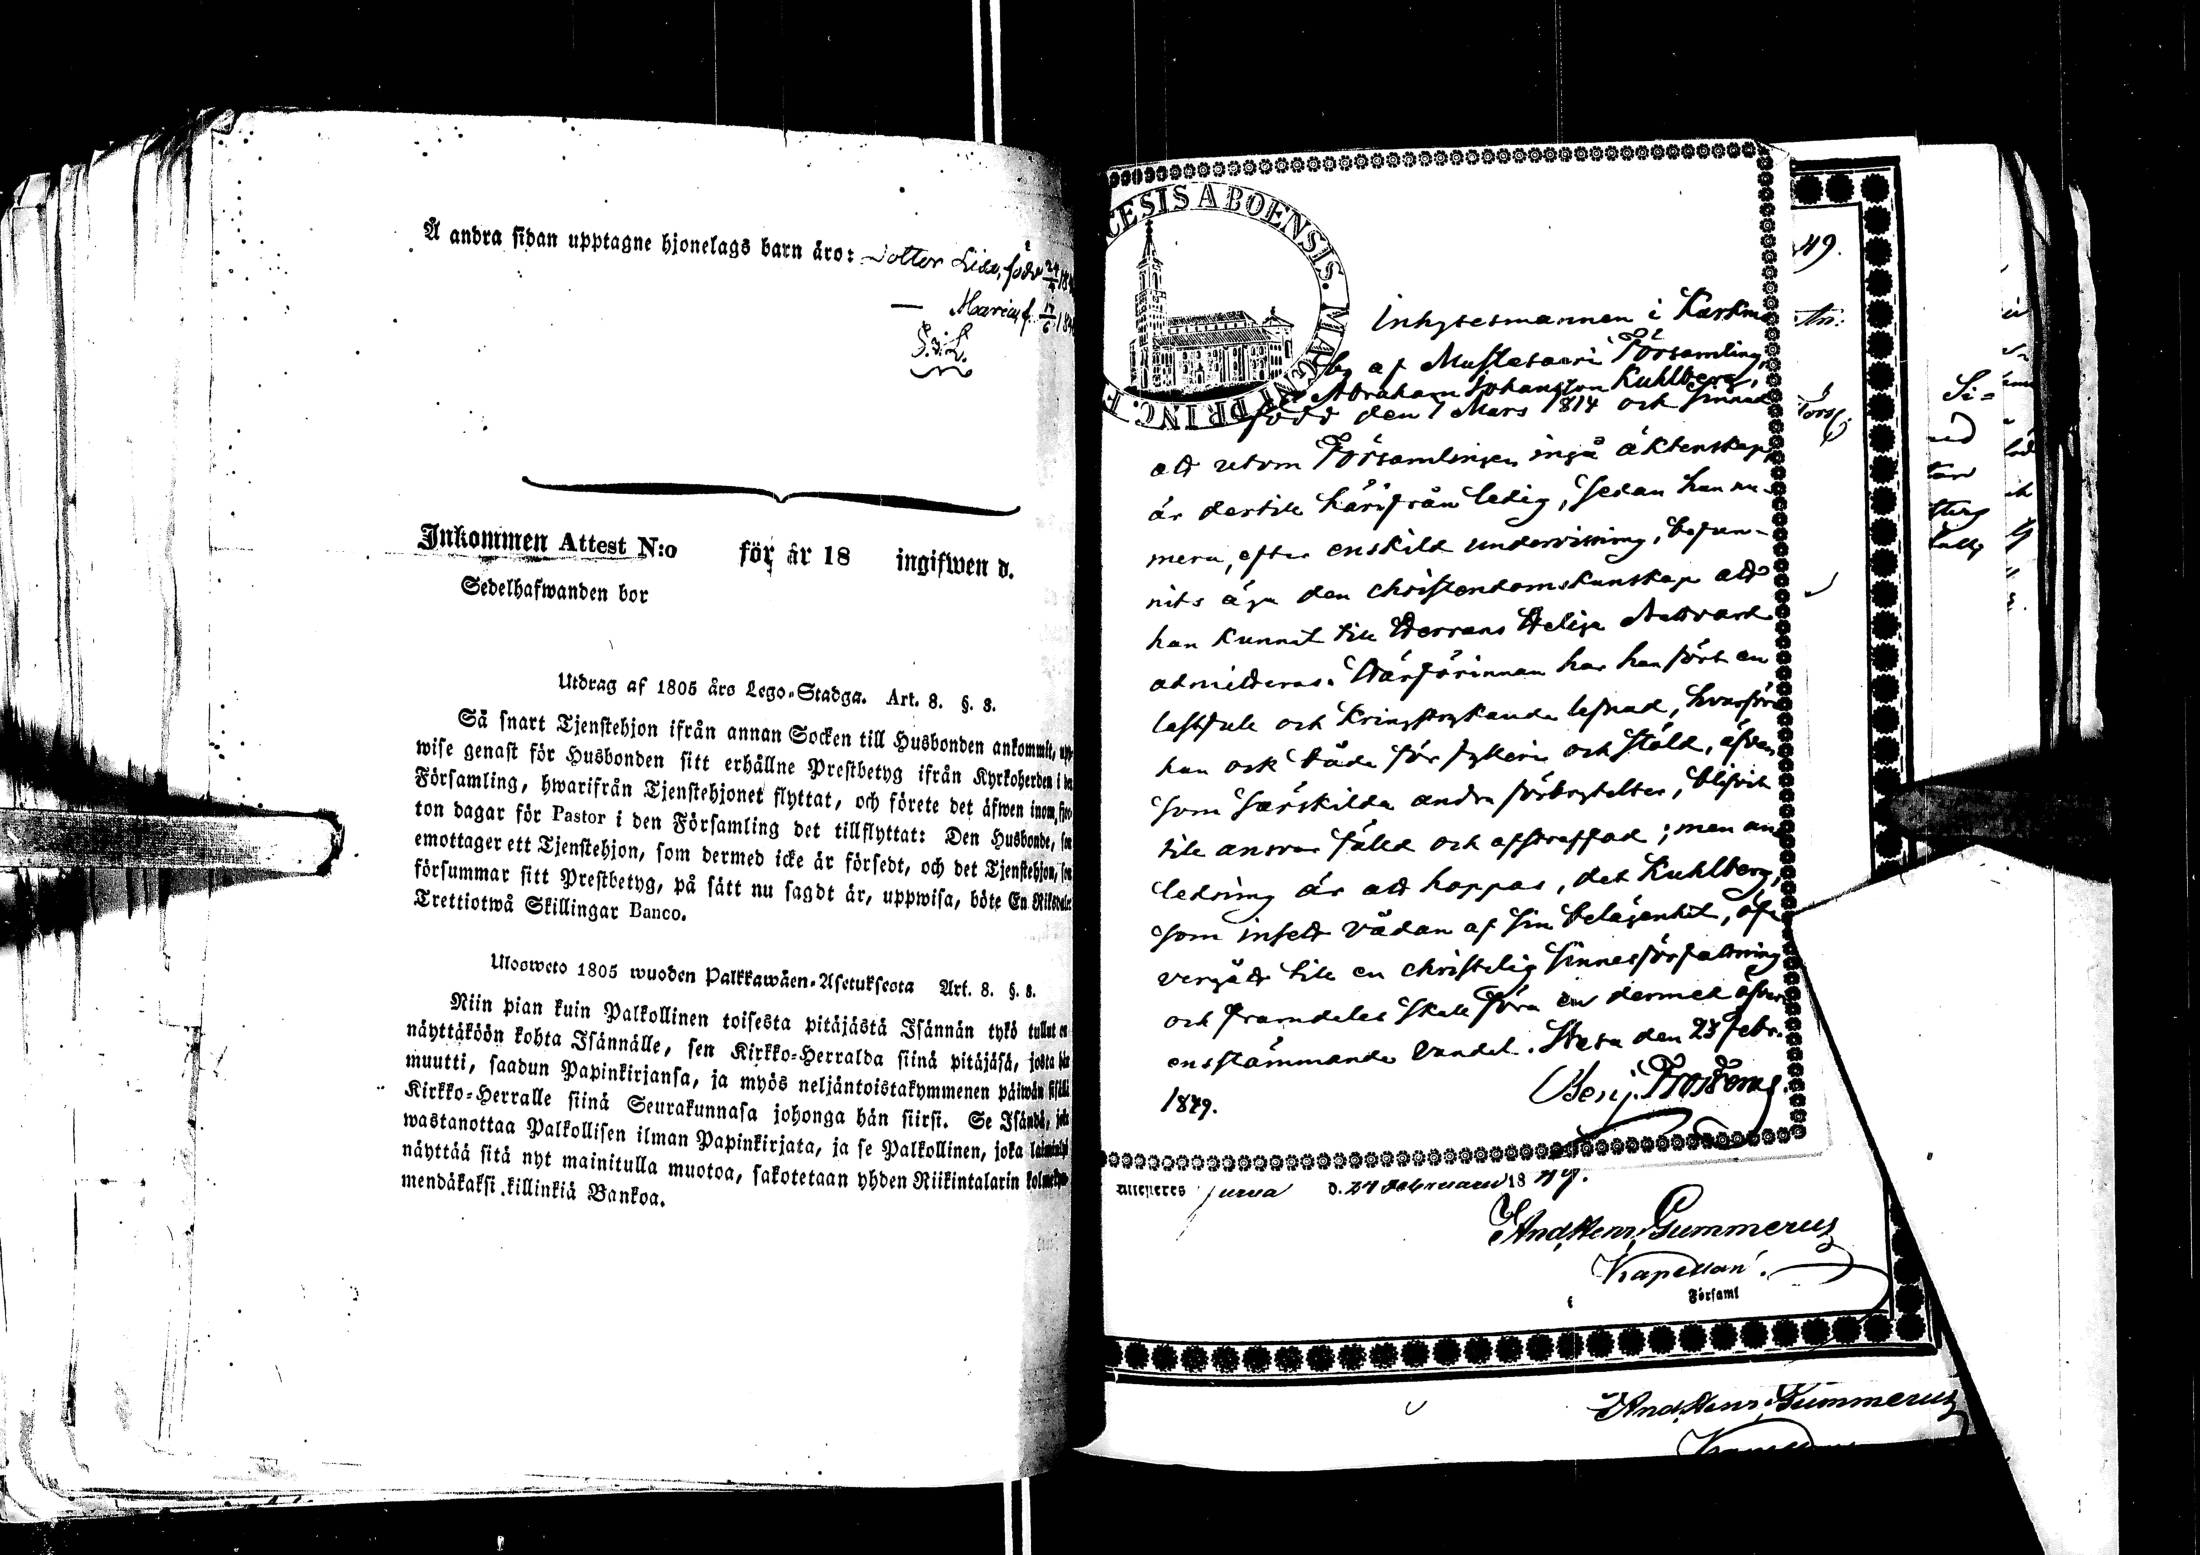 Å andra sidan upptagne hjonelags barn äro: Dotter Lisa, född 24/
— Maria f. 17/6
Inkommen Attest N:o för år 18 ingifwen d.
Sedelhafwanden bor
Utdrag af 1805 års Lego-Stadga. Art. 8. §. 3.
Så snart Tjenstehjon ifrån annan Socken till Husbonden ankommit, upp-
wise genast för Husbonden sitt erhållne Prestbetyg ifrån Kyrkoherden i den
Församling, hwarifrån Tjenstehjonet flyttat, och förete det äfwen inom fjor-
ton dagar för Pastor i den Församling det tillflyttat: Den Husbonde, som
emottager ett Tjenstehjon, som dermed icke är försedt, och det Tjenstehjon, som
försummar sitt Prestbetyg, på sätt nu sagdt är, uppwisa, böte En Riksdaler
Trettiotwå Skillingar Banco.
Ulosweto 1805 wuoden Palkkawäen-Asetuksesta Art. 8. §. 3.
Niin pian kuin Palkollinen toisesta pitäjästä Isännän tykö tullut on
näyttäköön kohta Isännälle, sen Kirkko-Herralda siinä pitäjäsä, josta hän
muutti, saadun Papinkirjansa, ja myös neljäntoistakymmenen päiwän sisällä
Kirkko-Herralle siinä Seurakunnasa johonga hän siirsi. Se Isändä, joka
wastanottaa Palkollisen ilman Papinkirjata, ja se Palkollinen, joka laiminlyö
näyttää sitä nyt mainitulla muotoa, sakotetaan yhden Riikintalarin kolmekym-
mendäkaksi killinkiä Bankoa.
CESIS ABOENSIS. MAGNI PRINC. F
Inhysesmannen i Karkmo
by af Mustasaari Församling,
Abraham Johansson Kuhlberg,
född den 1 Mars 1814 och sinnad
att utom Församlingen ingå äktenskap,
är dertill härifrån ledig, sedan han nu-
mera, efter enskild undervisning, befun-
nits äga den christendomskunskap att
han kunnat till Herrans Helige Nattvard
admitteras. Därförinnan har han fört en
lastfull och kringstrykande lefnad, hvarföre
han ock både för fylleri och stöld, äfven
som särskilda andra förbrytelser, blifvit
till ansvar fälld och afstraffad; men an-
ledning är att hoppas, det Kuhlberg,
som insett vådan af sin belägenhet, öf-
vergådt till en christelig sinnesförfattning
och framdeles skall föra en dermed öfver-
ensstämmande vandel. Wasa den 23 Febr.
1849.
Benj. Frosterus.
Attesteras Jurva d. 24 Februarii 1849.
And. Henr. Gummerus
Kapellan.
Församl
And. Henr. Gummerus
49.
Si=